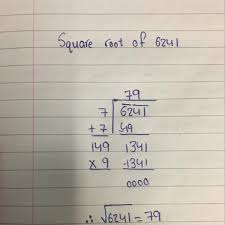 Square root of 6241
79
7 6241
+7 49
149 1341
x 9 -1341
0000
∴ √6241 = 79